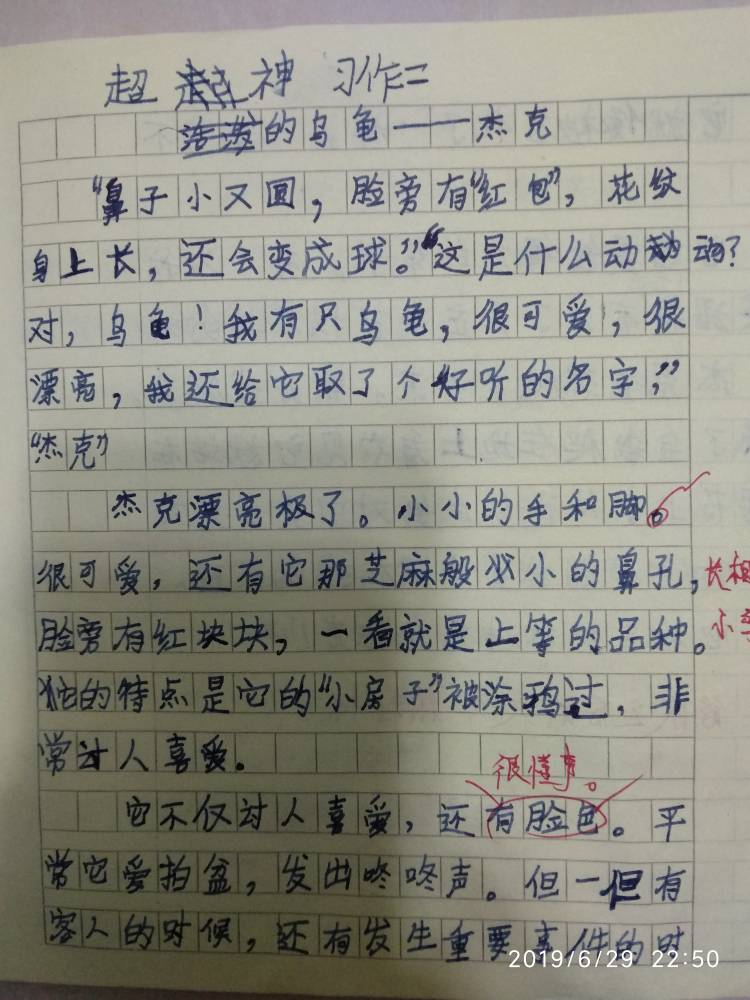 超 神 习作二
活泼的乌龟——杰克
“鼻子小又圆，脸旁有“红包”，花纹
身上长，还会变成球。”“这是什么动 动物？
对，乌龟！我有只乌龟，很可爱，很
漂亮，我还给它取了个好听的名字，”
“杰克”
杰克漂亮极了。小小的手和脚。
很可爱，还有它那芝麻般 小的鼻孔， 长相
脸旁有红块块，一看就是上等的品种。 小
它的特点是它的“小房子”被涂鸦过，非
常讨人喜爱。
很懂事。
它不仅讨人喜爱，还有脸色。平
常它爱拍盆，发出咚咚声。但一但有
客人的时候，还有发生重要事件的时
2019/6/29 22:50